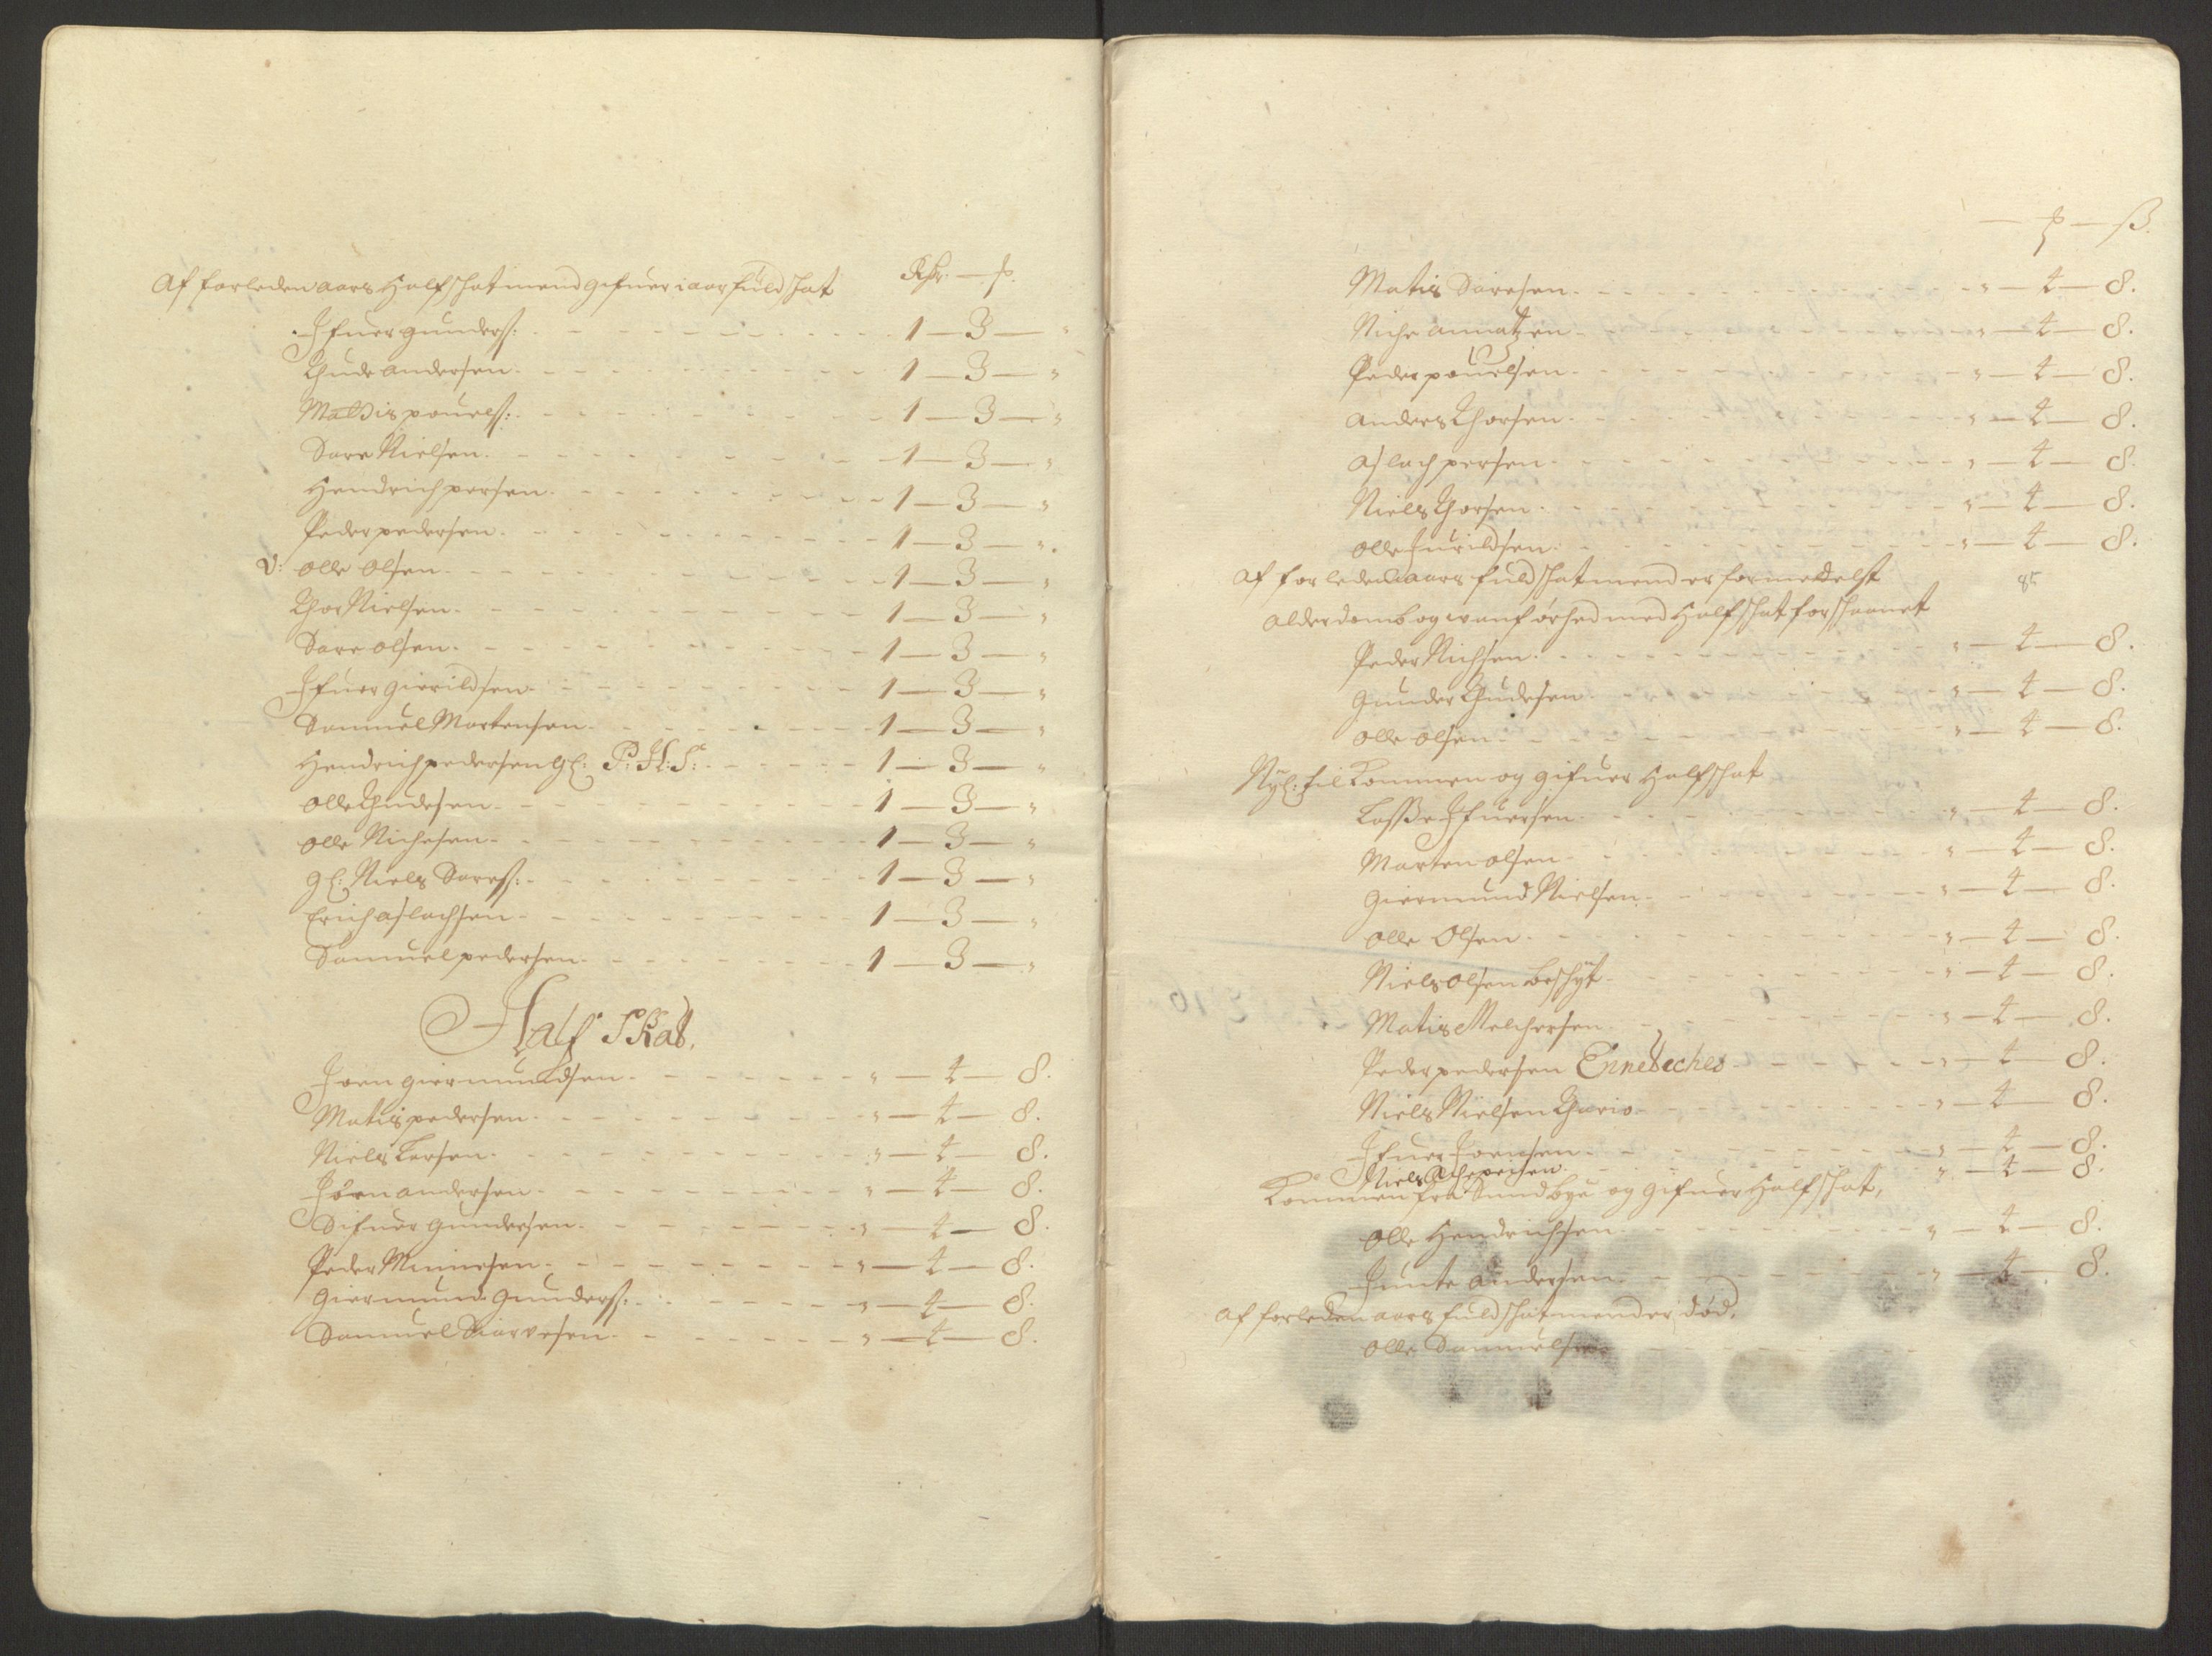 Af forleden aars Half schat mend gifuer i aar fuld schat
Ifuer gunders: 1 — 3 — "
Chude andersen. 1 — 3 — "
Mattis pouels: 1 — 3 — "
Sare Nielsen. 1 — 3 — "
Hendrich persen. 1 — 3 — "
Peder pedersen. 1 — 3 — "
V: olle olsen. 1 — 3 — "
Thor Nielsen. 1 — 3 — "
Sare olsen. 1 — 3 — "
Ifuer gierildsen. 1 — 3 — "
Samuel Mortensen. 1 — 3 — "
Hendrich pedersen gl: P: H: S: 1 — 3 — "
olle Chudesen. 1 — 3 — "
olle Nichesen. 1 — 3 — "
gl: Niels Sares: 1 — 3 — "
Erich aslachsen. 1 — 3 — "
Samuel pedersen. 1 — 3 — "
Half Skat.
Joen giermundsen. " — 4 — 8.
Matis pedersen. " — 4 — 8.
Niels Larsen. " — 4 — 8.
Jørn andersen. " — 4 — 8.
Sifuer gundersen. " — 4 — 8.
Peder Munnesen. " — 4 — 8.
giermund gunders: " — 4 — 8.
Samuel " — 4 — 8.
— ß.
Matis Saresen. " — 4 — 8.
Niche " — 4 — 8.
Peder pouelsen. " — 4 — 8.
anders Thorsen. " — 4 — 8.
aslach persen. " — 4 — 8.
Niels Thorsen. " — 4 — 8.
olle Jurildsen. " — 4 — 8.
af forleden aars fuld schat mend er formedelst
alderdomb og vanførhed med Half schat forschaanet
Peder Nichsen. " — 4 — 8.
gunder Chudesen. " — 4 — 8.
olle olsen. " — 4 — 8.
Nyl: til kommen og gifuer Half schat
Lasse Ifuersen. " — 4 — 8.
Morten olsen. " — 4 — 8.
giermund Nielsen. " — 4 — 8.
olle Olsen. " — 4 — 8.
Niels olsen " — 4 — 8.
Matis Melchersen. " — 4 — 8.
Peder pedersen Ennebeches " — 4 — 8.
Niels Nielsen " — 4 — 8.
Ifuer Joensen. " — 4 — 8.
Niels " — 4 — 8.
Kommen fra Sundbye og gifuer Half schat,
olle Hendrichsen. " — 4 — 8.
Junte andersen. " — 4 — 8.
af forleden aars fuld schat mend er død.
olle Samuelsen